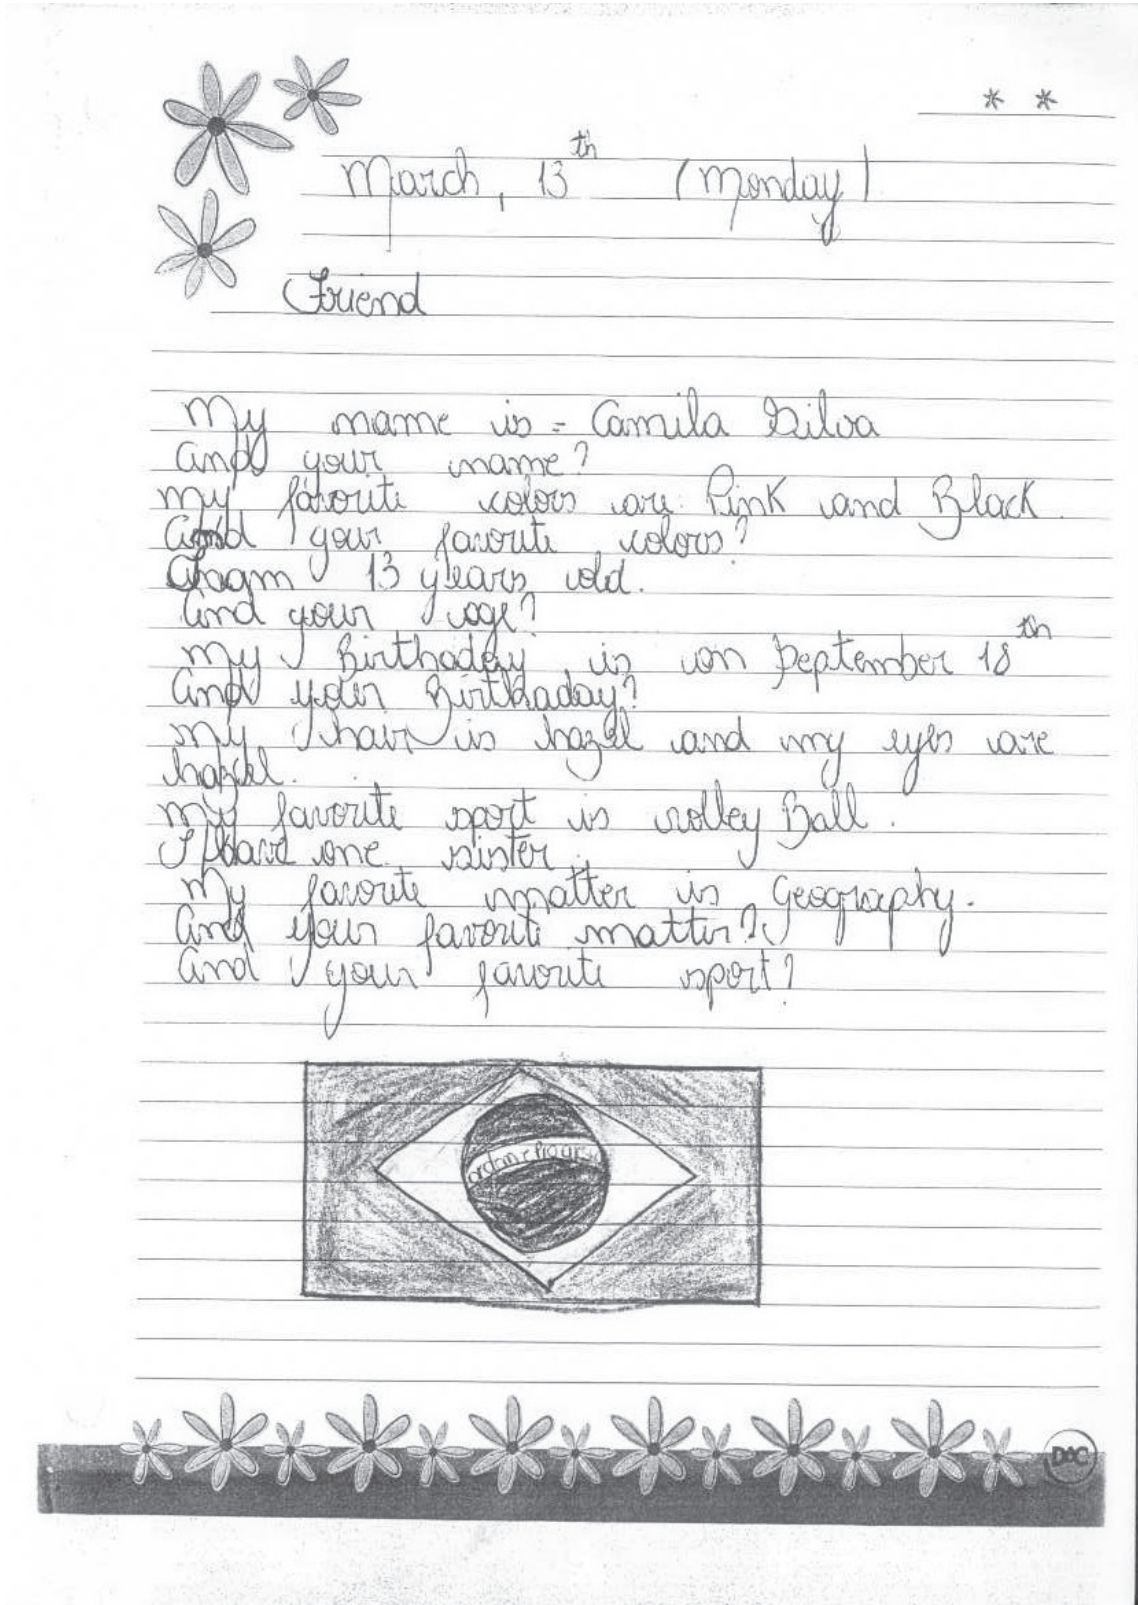 March, 13th (Monday)
Friend
My name is = Camila Silva
And your name?
My favorite colors are: Pink and Black.
And your favorite colors?
13 years old.
And your age?
My Birthaday is on September 18th
And your Birthaday?
My hair is hazel and my eyes are
hazel.
My favorite sport is volley Ball.
I have one sister.
My favorite matter is Geography.
And your favorite matter?
And your favorite sport?
ordem e Progresso
DAC